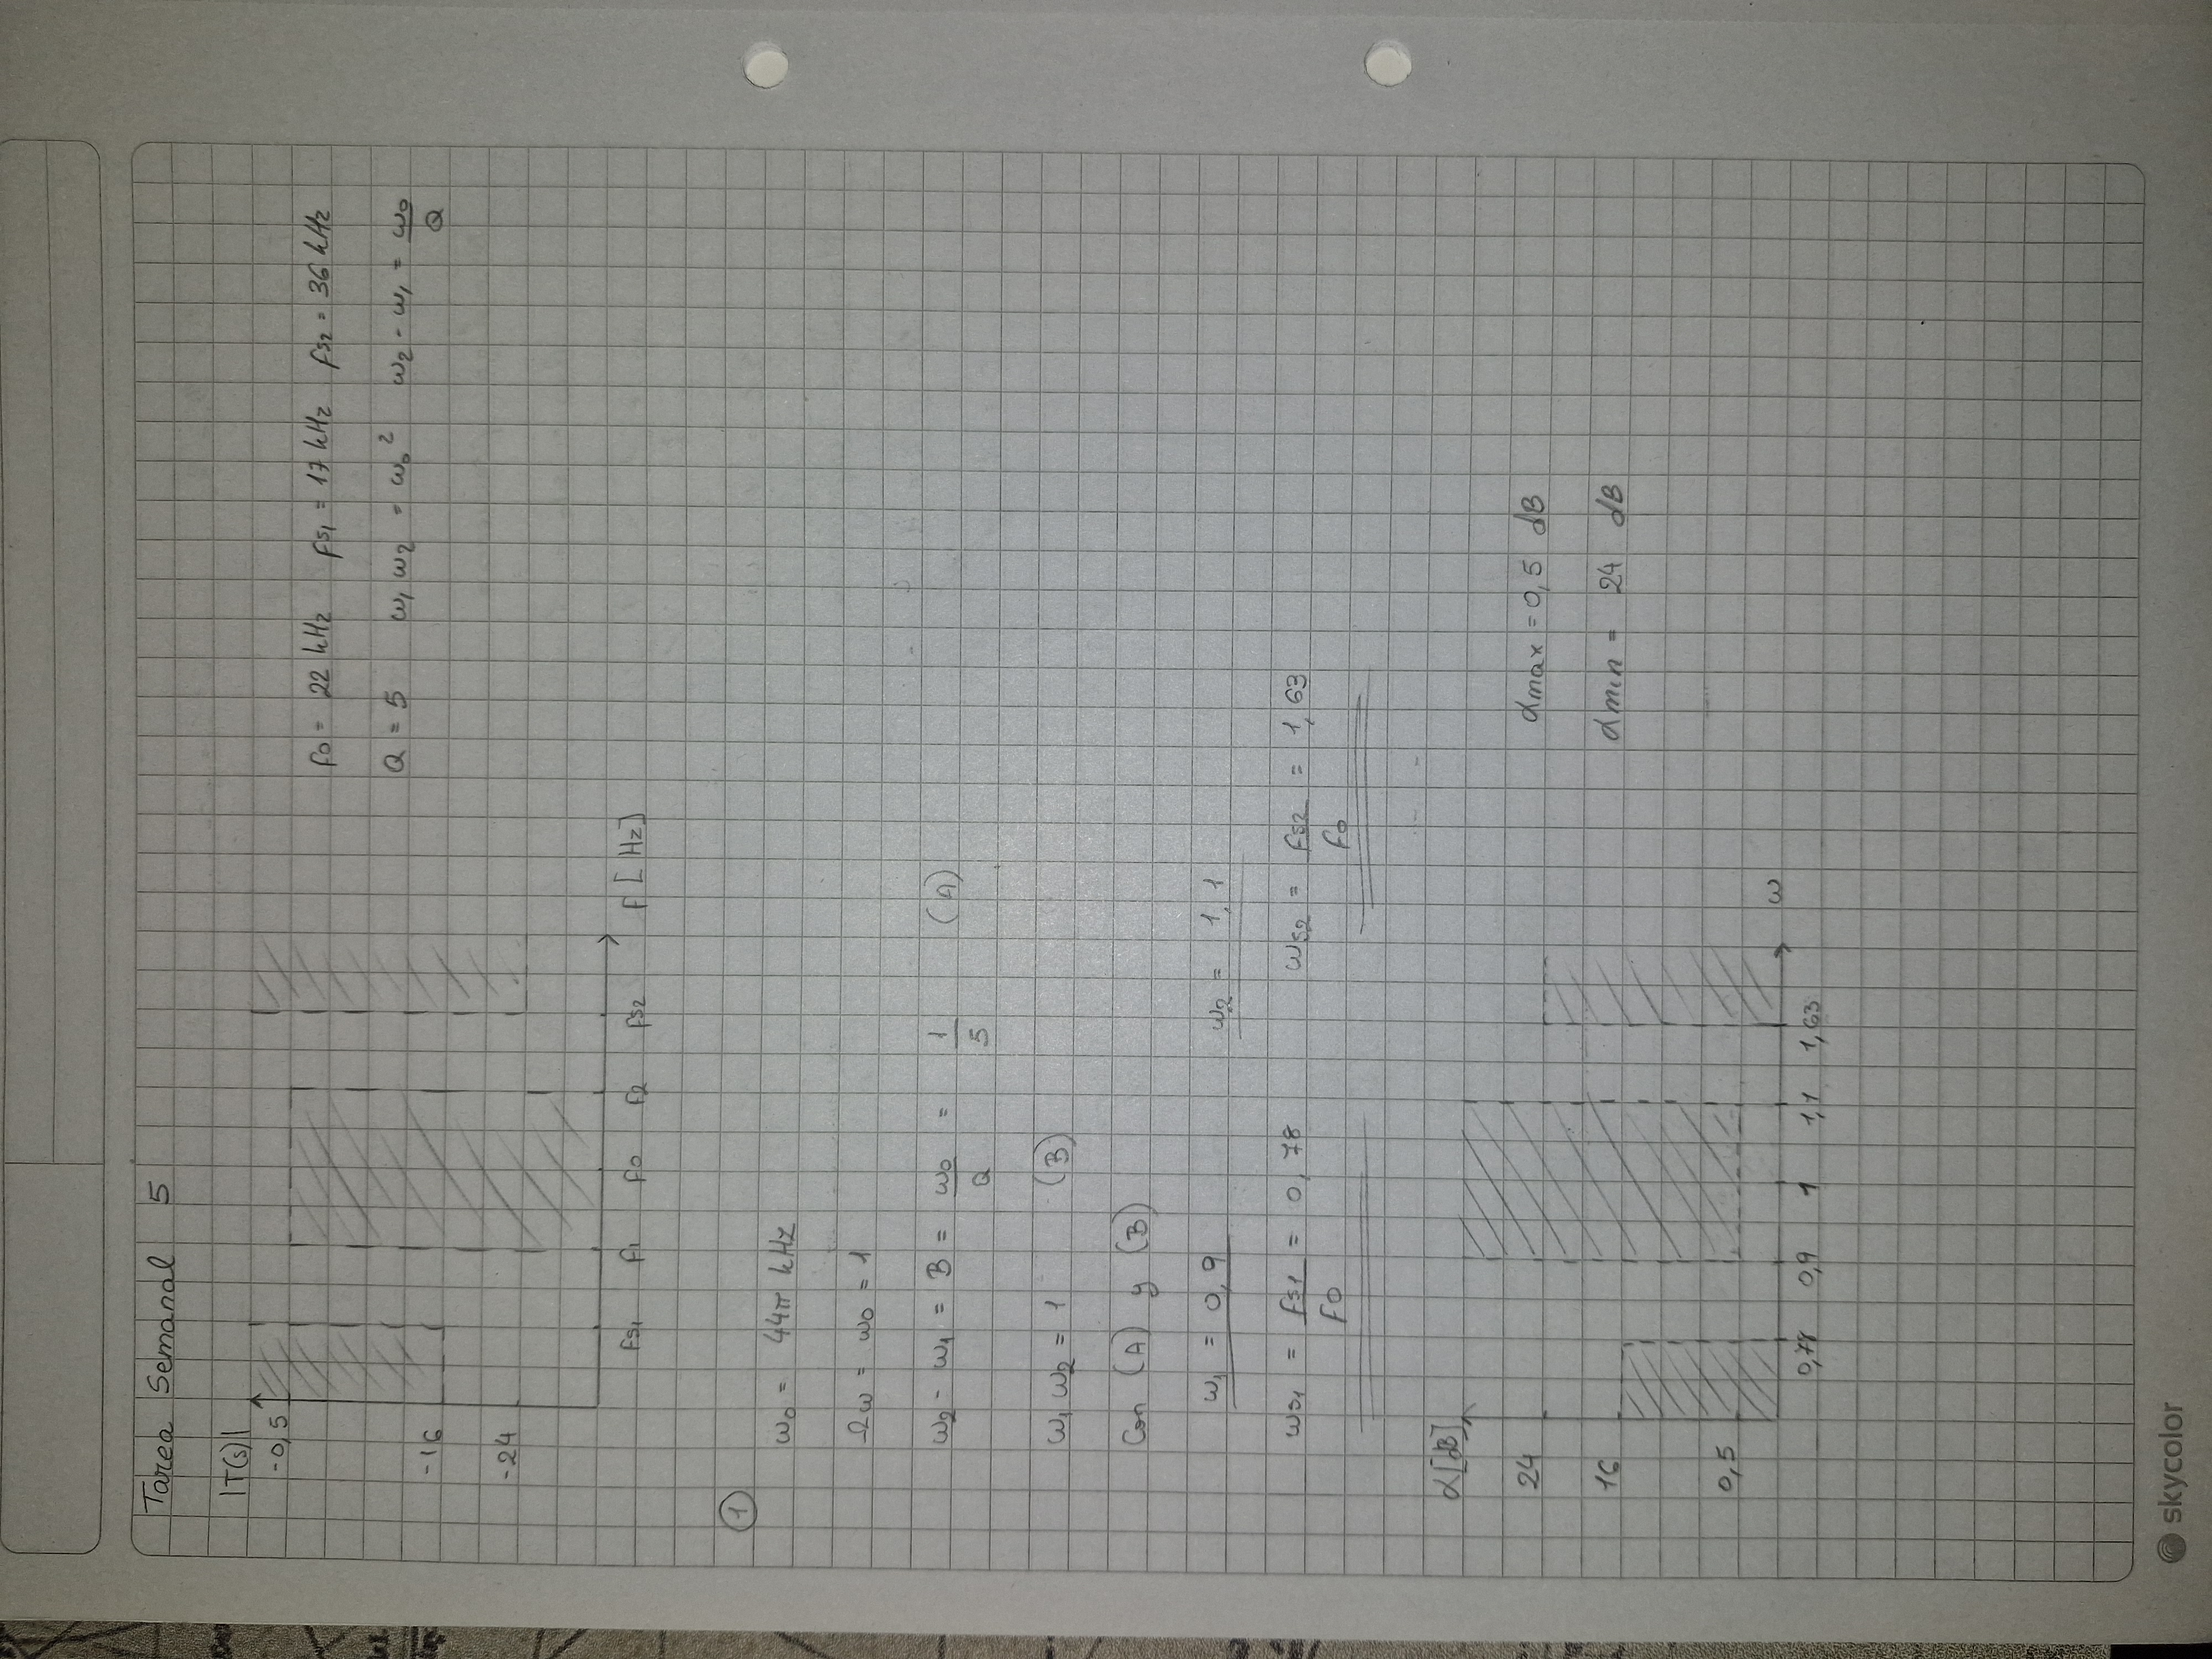 Tarea Semanal 5
|T(s)|
-0,5
-16
-24
fs1 f1 f0 f2 fs2 f[Hz]
f0 = 22 kHz fs1 = 17 kHz fs2 = 36 kHz
Q = 5 ω1 ω2 = ω0² ω2 - ω1 = ω0/Q
1
ω0 = 44π kHz
Ωω = ω0 = 1
ω2 - ω1 = B = ω0/Q = 1/5 (A)
ω1 ω2 = 1 (B)
Con (A) y (B)
ω1 = 0,9 ω2 = 1,1
ωs1 = fs1/f0 = 0,78 ωs2 = fs2/f0 = 1,63
α[dB]
24
16
0,5
0,78 0,9 1 1,1 1,63 ω
αmax = 0,5 dB
αmin = 24 dB
skycolor